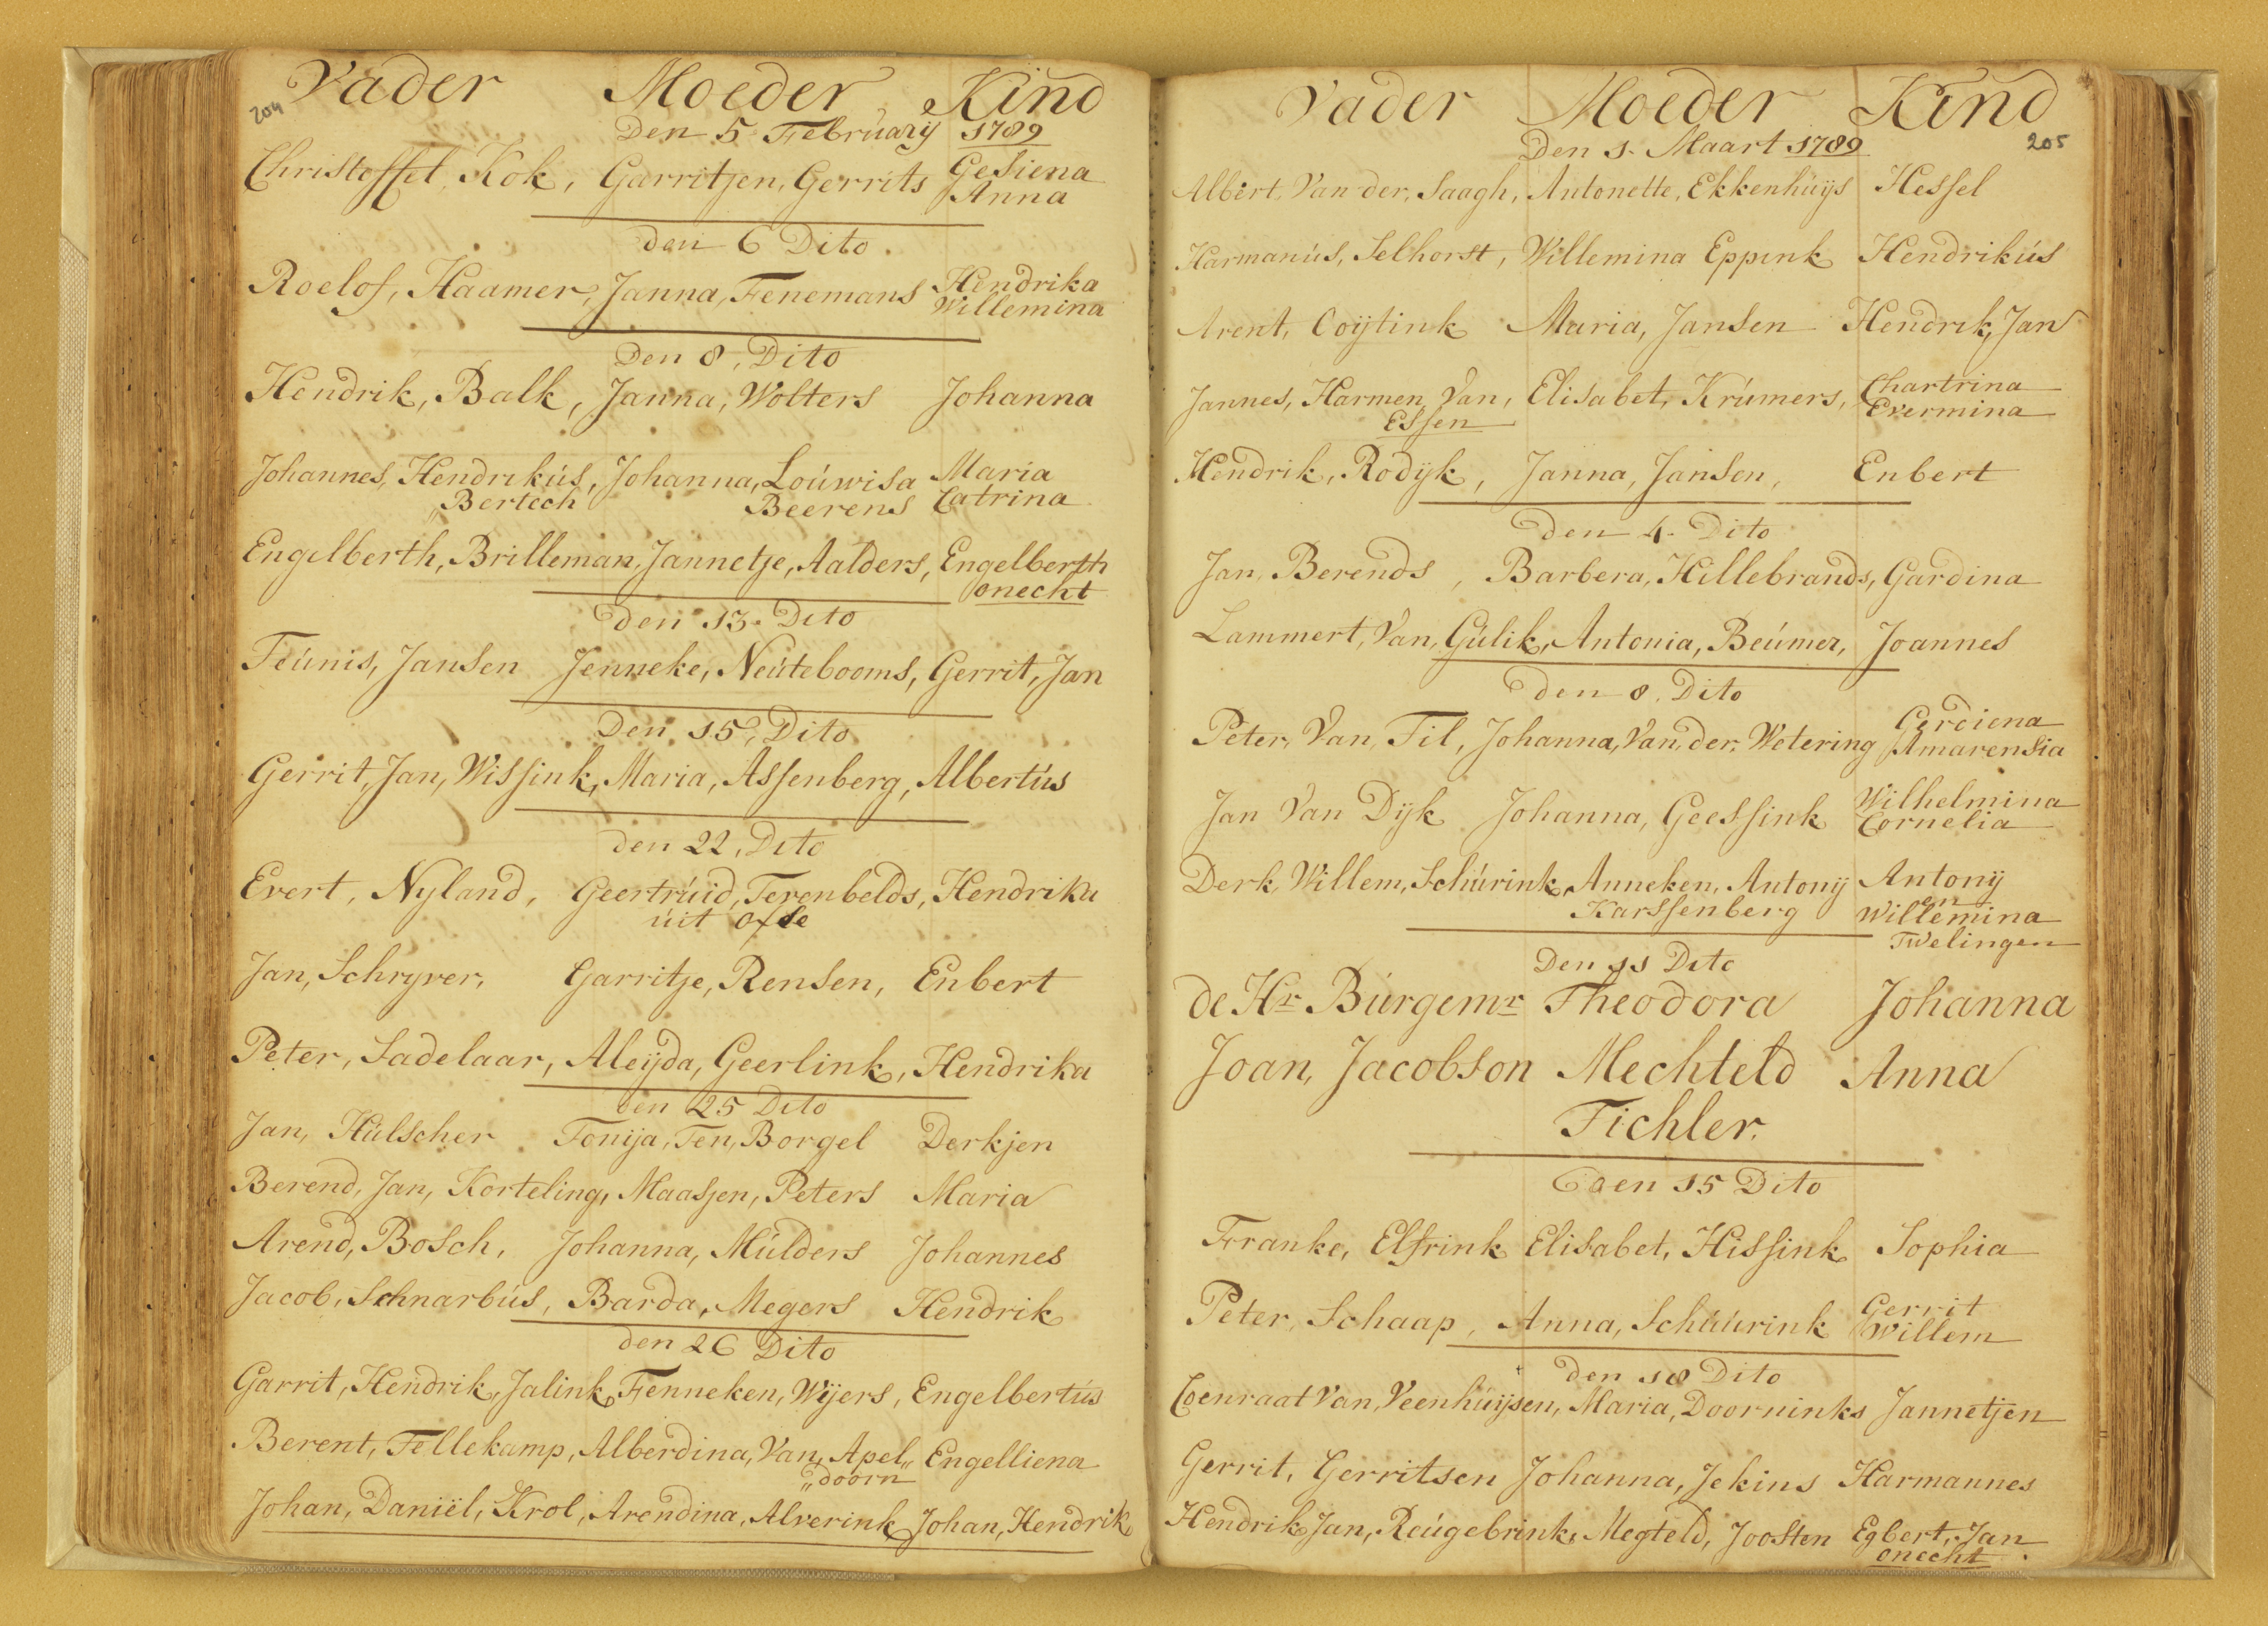 204
Vader Moeder Kind
Den 5 Februarij 1789
Christoffel Kok, Garritjen, Gerrits Gesiena
Anna
den 6 Dito
Roelof, Haamer, Janna, Fenemans Hendrika
Willemina
Den 8, Dito
Hendrik, Balk, Janna, Wolters Johanna
Johannes, Hendrikús, Johanna, Loúwisa Maria
Bertech Beerens Catrina
Engelberth, Brilleman, Jannetje, Aalders, Engelberth
onecht
den 13. Dito
Teúnis, Jansen Jenneke, Neútebooms, Gerrit, Jan
Den 15, Dito
Gerrit, Jan, Wissink, Maria, Assenberg, Albertús
den 22, Dito
Evert, Nyland, Geertrúid, Terenbelds, Hendrika
úit Oxse
Jan, Schryver, Garritje, Rensen, Enbert
Peter, Sadelaar, Aleijda, Geerlink, Hendrika
den 25 Dito
Jan, Hülscher Tonija, Ten, Borgel Derkjen
Berend, Jan, Korteling, Maasjen, Peters Maria
Arend, Bosch, Johanna, Múlders Johannes
Jacob, Schnarbús, Barda, Megers Hendrik
den 26 Dito
Garrit, Hendrik, Jalink, Fenneken, Wijers, Engelbertús
Berent, Tellekamp, Alberdina, Van, Apel,, Engelliena
,,doorn
Johan, Daniël, Krol, Arendina, Alverink Johan, Hendrik
Vader Moeder Kind
205
Den 1. Maart 1789
Albert, Van der, Saagh, Antonette, Ekkenhúijs Hessel
Harmanús, Selhorst, Willemina Eppink Hendrikús
Arent, Coijtink Maria, Jansen Hendrik, Jan
Jannes, Harmen, Van, Elisabet, Krúmers, Chartrina
Essen Evermina
Hendrik, Rodijk, Janna, Jansen, Enbert
den 4. Dito
Jan, Berends, Barbera, Hillebrands, Gardina
Lammert, Van, Gúlik, Antonia, Beúmer, Joannes
den 8. Dito
Peter, Van, Til, Johanna, Van, der, Wetering Gerdiena
Amarensia
Jan Van Dijk Johanna, Geessink Wilhelmina
Cornelia
Derk, Willem, Schúrink, Anneken, Antonij Antonij
en
Karssenberg Willemina
Twelingen
Den 11 Dito
de Hr Búrgemr Theodora Johanna
Joan, Jacobson Mechteld Anna
Tichler.
den 15 Dito
Franke, Elfrink Elisabet, Hissink Sophia
Peter, Schaap, Anna, Schúúrink Gerrit
Willem
den 18 Dito
Coenraat Van, Veenhúijsen, Maria, Doorninks Jannetjen
Gerrit, Gerritsen Johanna, Jekins Harmannes
Hendrik Jan, Reúgebrink, Megteld, Joosten Egbert, Jan
onecht